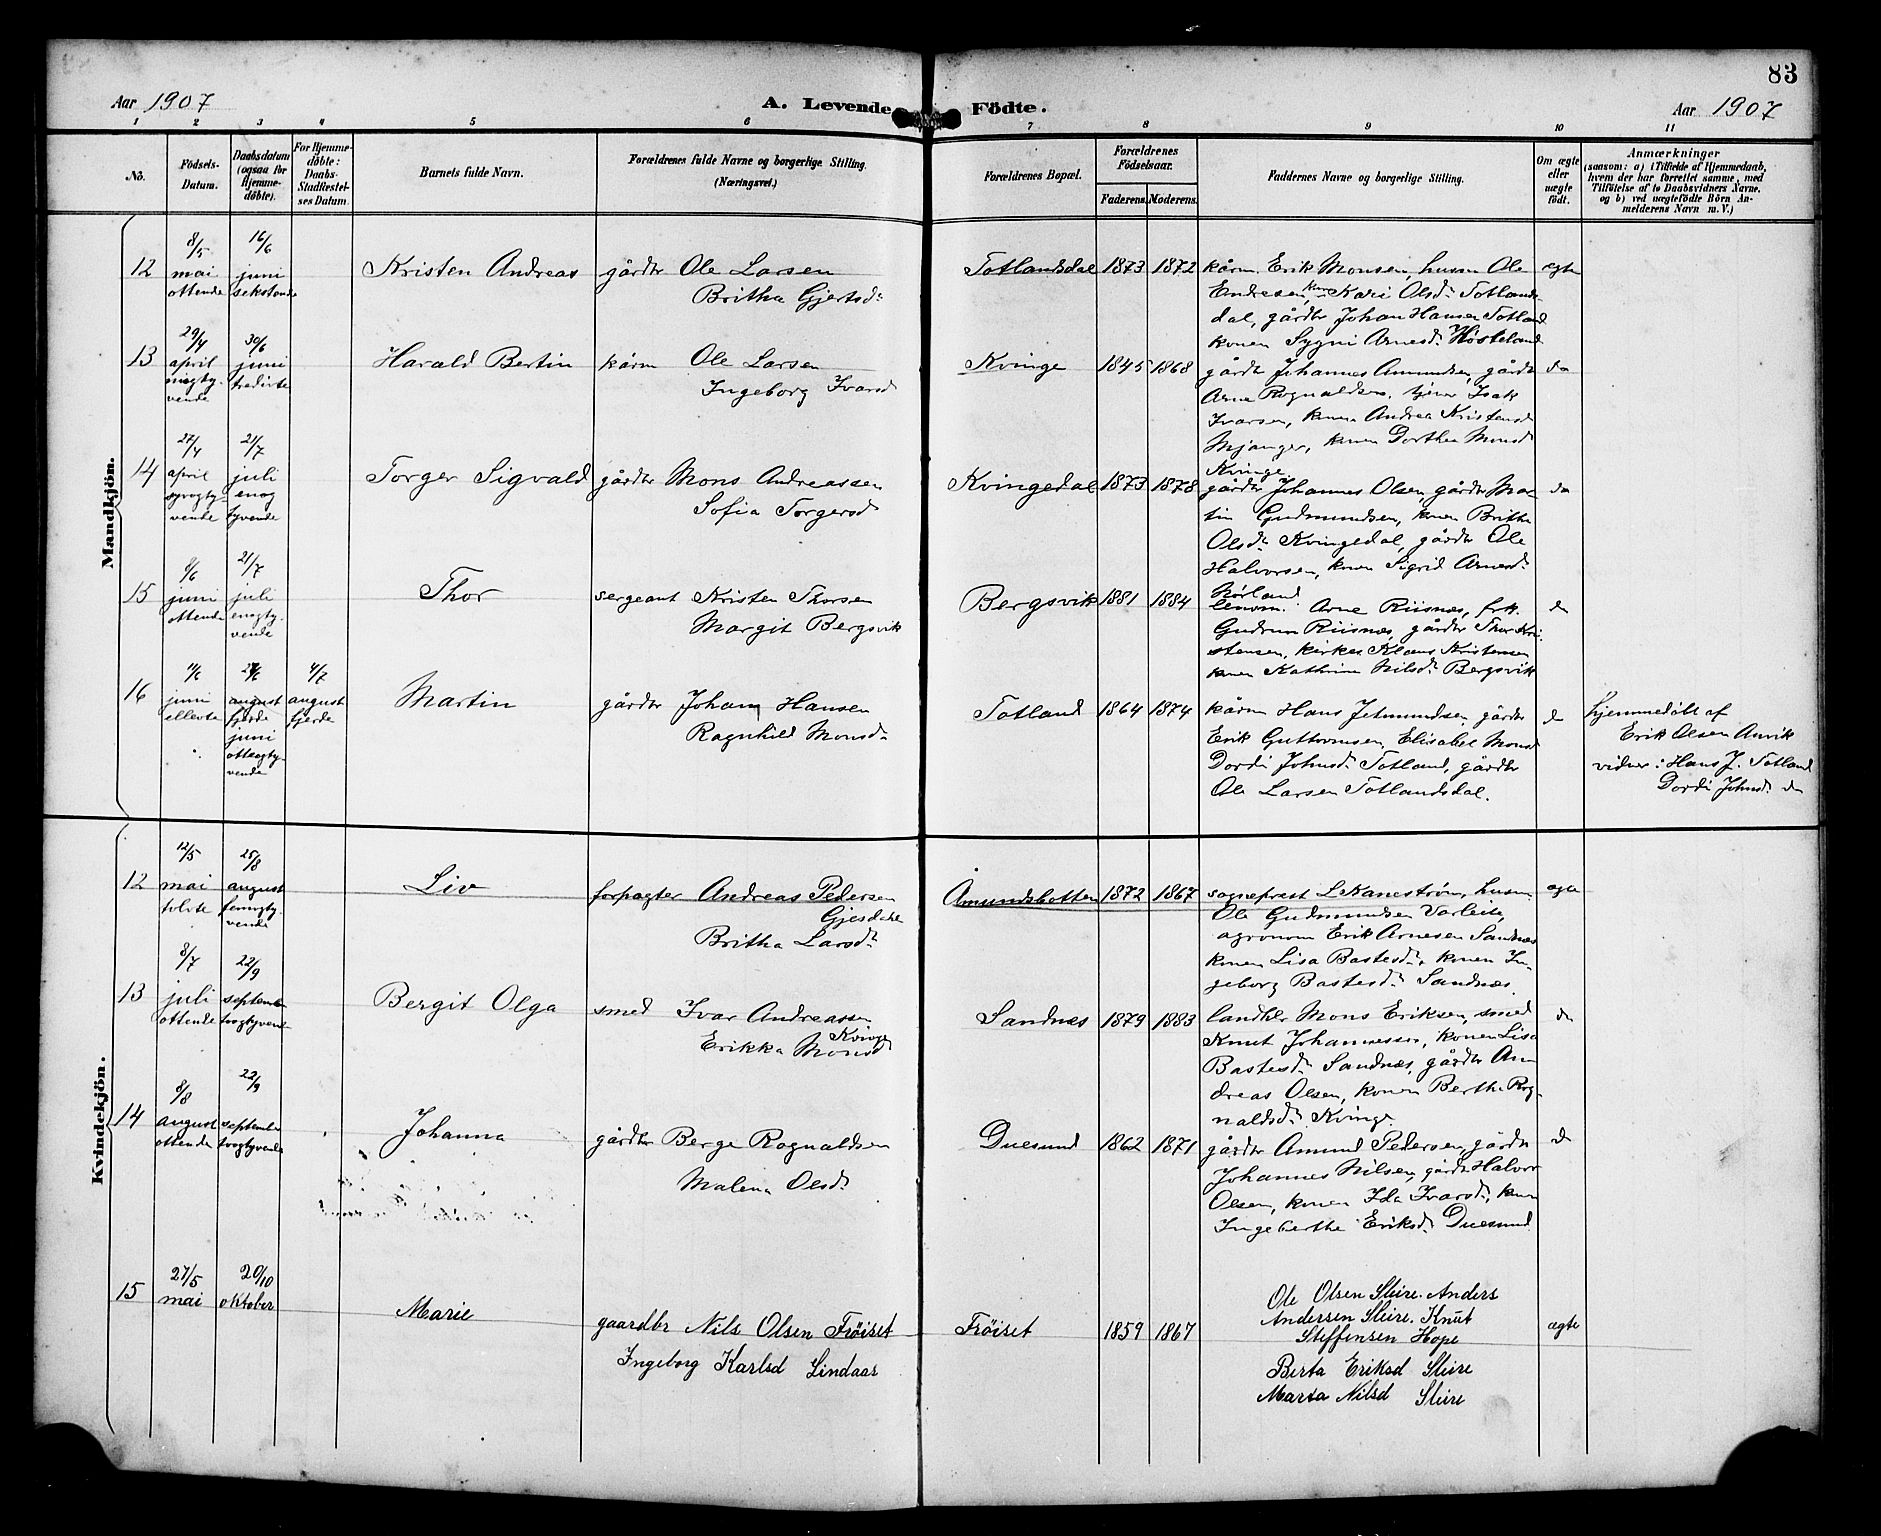 83
Aar 1907 A. Levende Födte. Aar 1907
1 2 3 4 5 6 7 8 9 10 11
No.
Födsels-
Datum.
Daabsdatum
(ogsaa for
Hjemme-
døbte).
For Hjemme-
døbte:
Daabs-
Stadfæstel-
ses Datum.
Barnets fulde Navn.
Forældrenes fulde Navne og borgerlige Stilling.
(Næringsvei.)
Forældrenes Bopæl.
Forældrenes
Födselsaar.
Faderens. Moderens.
Faddernes Navne og borgerlige Stilling.
Om ægte
eller
uægte
født.
Anmærkninger
(saasom: a) i Tilfælde af Hjemmedaab,
hvem der har forrettet samme, med
Tilföielse af to Daabsvidners Navne.
og b) ved uægtefödte Börn An-
melderens Navn m. V.)
Mandkjön.
12
8/5
mai
ottende
16/6
juni
sekstende
Kristen Andreas
gårdbr Ole Larsen
Britha Gjertsdr
Totlandsdal 1873 1872
kårm. Erik Monsen, husm Ole
Endresen, kone Kari Olsdr Totlands-
dal, gårdbr Johan Hansen Totland
konen Sygni Arnesdr Hösteland
ægte
13
29/4
april
niogty-
vende
30/6
juni
tredivte
Harald Bertin
kårm Ole Larsen
Ingeborg Ivarsd
Kvinge 1845 1868
gårdbr Johannes Amundsen, gårdbr
Arne Rognaldsen, tjener Isak
Ivarsen, konen Andrea Kristensd
Mjanger, konen Dorthea Monsd
Kvinge.
do
14
27/4
april
syvogty-
vende
21/7
juli
enog
tyvende
Torger Sigvald
gårdbr Mons Andreassen
Sofia Torgersd
Kvingedal 1873 1878
gårdbr Johannes Olsen, gårdbr Mar-
tin Gudmundsen, konen Britha
Olsdr Kvingedal, gårdbr Ole
Halvorsen, konen Sigrid Arnesdr
Nörland
do
15
8/6
juni
ottende
21/7
juli
enogty-
vende
Thor
sergeant Kristen Thorsen
Margit Bergsvik
Bergsvik 1881 1884
lensm. Arne Riisnæs, frk.
Gudrun Riisnæs, gårdbr Thor Kri-
stensen, kirkes Klaus Kristensen
konen Kathrine Nilsdr Bergsvik
do
16
11/6
juni
ellevte
august
fjerde
juni
otteogty-
vende
4/7
august
fjerde
Martin
gårdbr Johan Hansen
Ragnhild Monsdr
Totland 1864 1874
kårm Hans Jetmundsen, gårdbr
Erik Guttormsen, Elisabet Monsd
Dordi Johnsdr Totland, gårdbr
Ole Larsen Totlandsdal.
do
hjemmedöbt af
Erik Olsen Anvik
vidner: Hans J. Totland
Dordi Johnsdr do
Kvindekjön.
12
12/5
mai
tolvte
25/8
august
femogty-
vende
Liv
forpagter Andreas Pedersen
Gjesdahl
Britha Larsdr
Åmundsbotten 1872 1867
sogneprest L Kanestrøm, husm
Ole Gudmundsen Varleite,
agronom Erik Arnesen Sandnæs
konen Lisa Bastesdr, konen In-
geborg Bastesdr Sandnæs.
ægte
13
8/7
juli
ottende
22/9
september
toogtyvende
Bergit Olga
smed Ivar Andreassen
Kvinge
Erikka Monsd
Sandnæs 1879 1883
landhdlr Mons Eriksen, smed
Knut Johannessen, konen Lisa
Bastesdr Sandnæs, gårdbr An-
dreas Olsen, konen Berthe Rog-
naldsdr Kvinge
do
14
8/8
august
ottende
22/9
september
toogtyvende
Johanna
gårdbr Berge Rognaldsen
Malena Olsdr
Duesund 1862 1871
gårdbr Amund Pedersen, gårdbr
Johannes Nilsen, gårdbr Halvor
Olsen, konen Ida Ivarsdr, konen
Ingeberthe Eriksdr Duesund
do
15
27/5
mai
20/10
oktober
Marie
gaardbr Nils Olsen Fröiset
Ingeborg Karlsd Lindaas
Fröiset 1859 1867
Ole Olsen Sleire. Anders
Andersen Sleire. Knut
Steffensen Hope
Berta Eriksd Sleire
Marta Nilsd Sleire
ægte